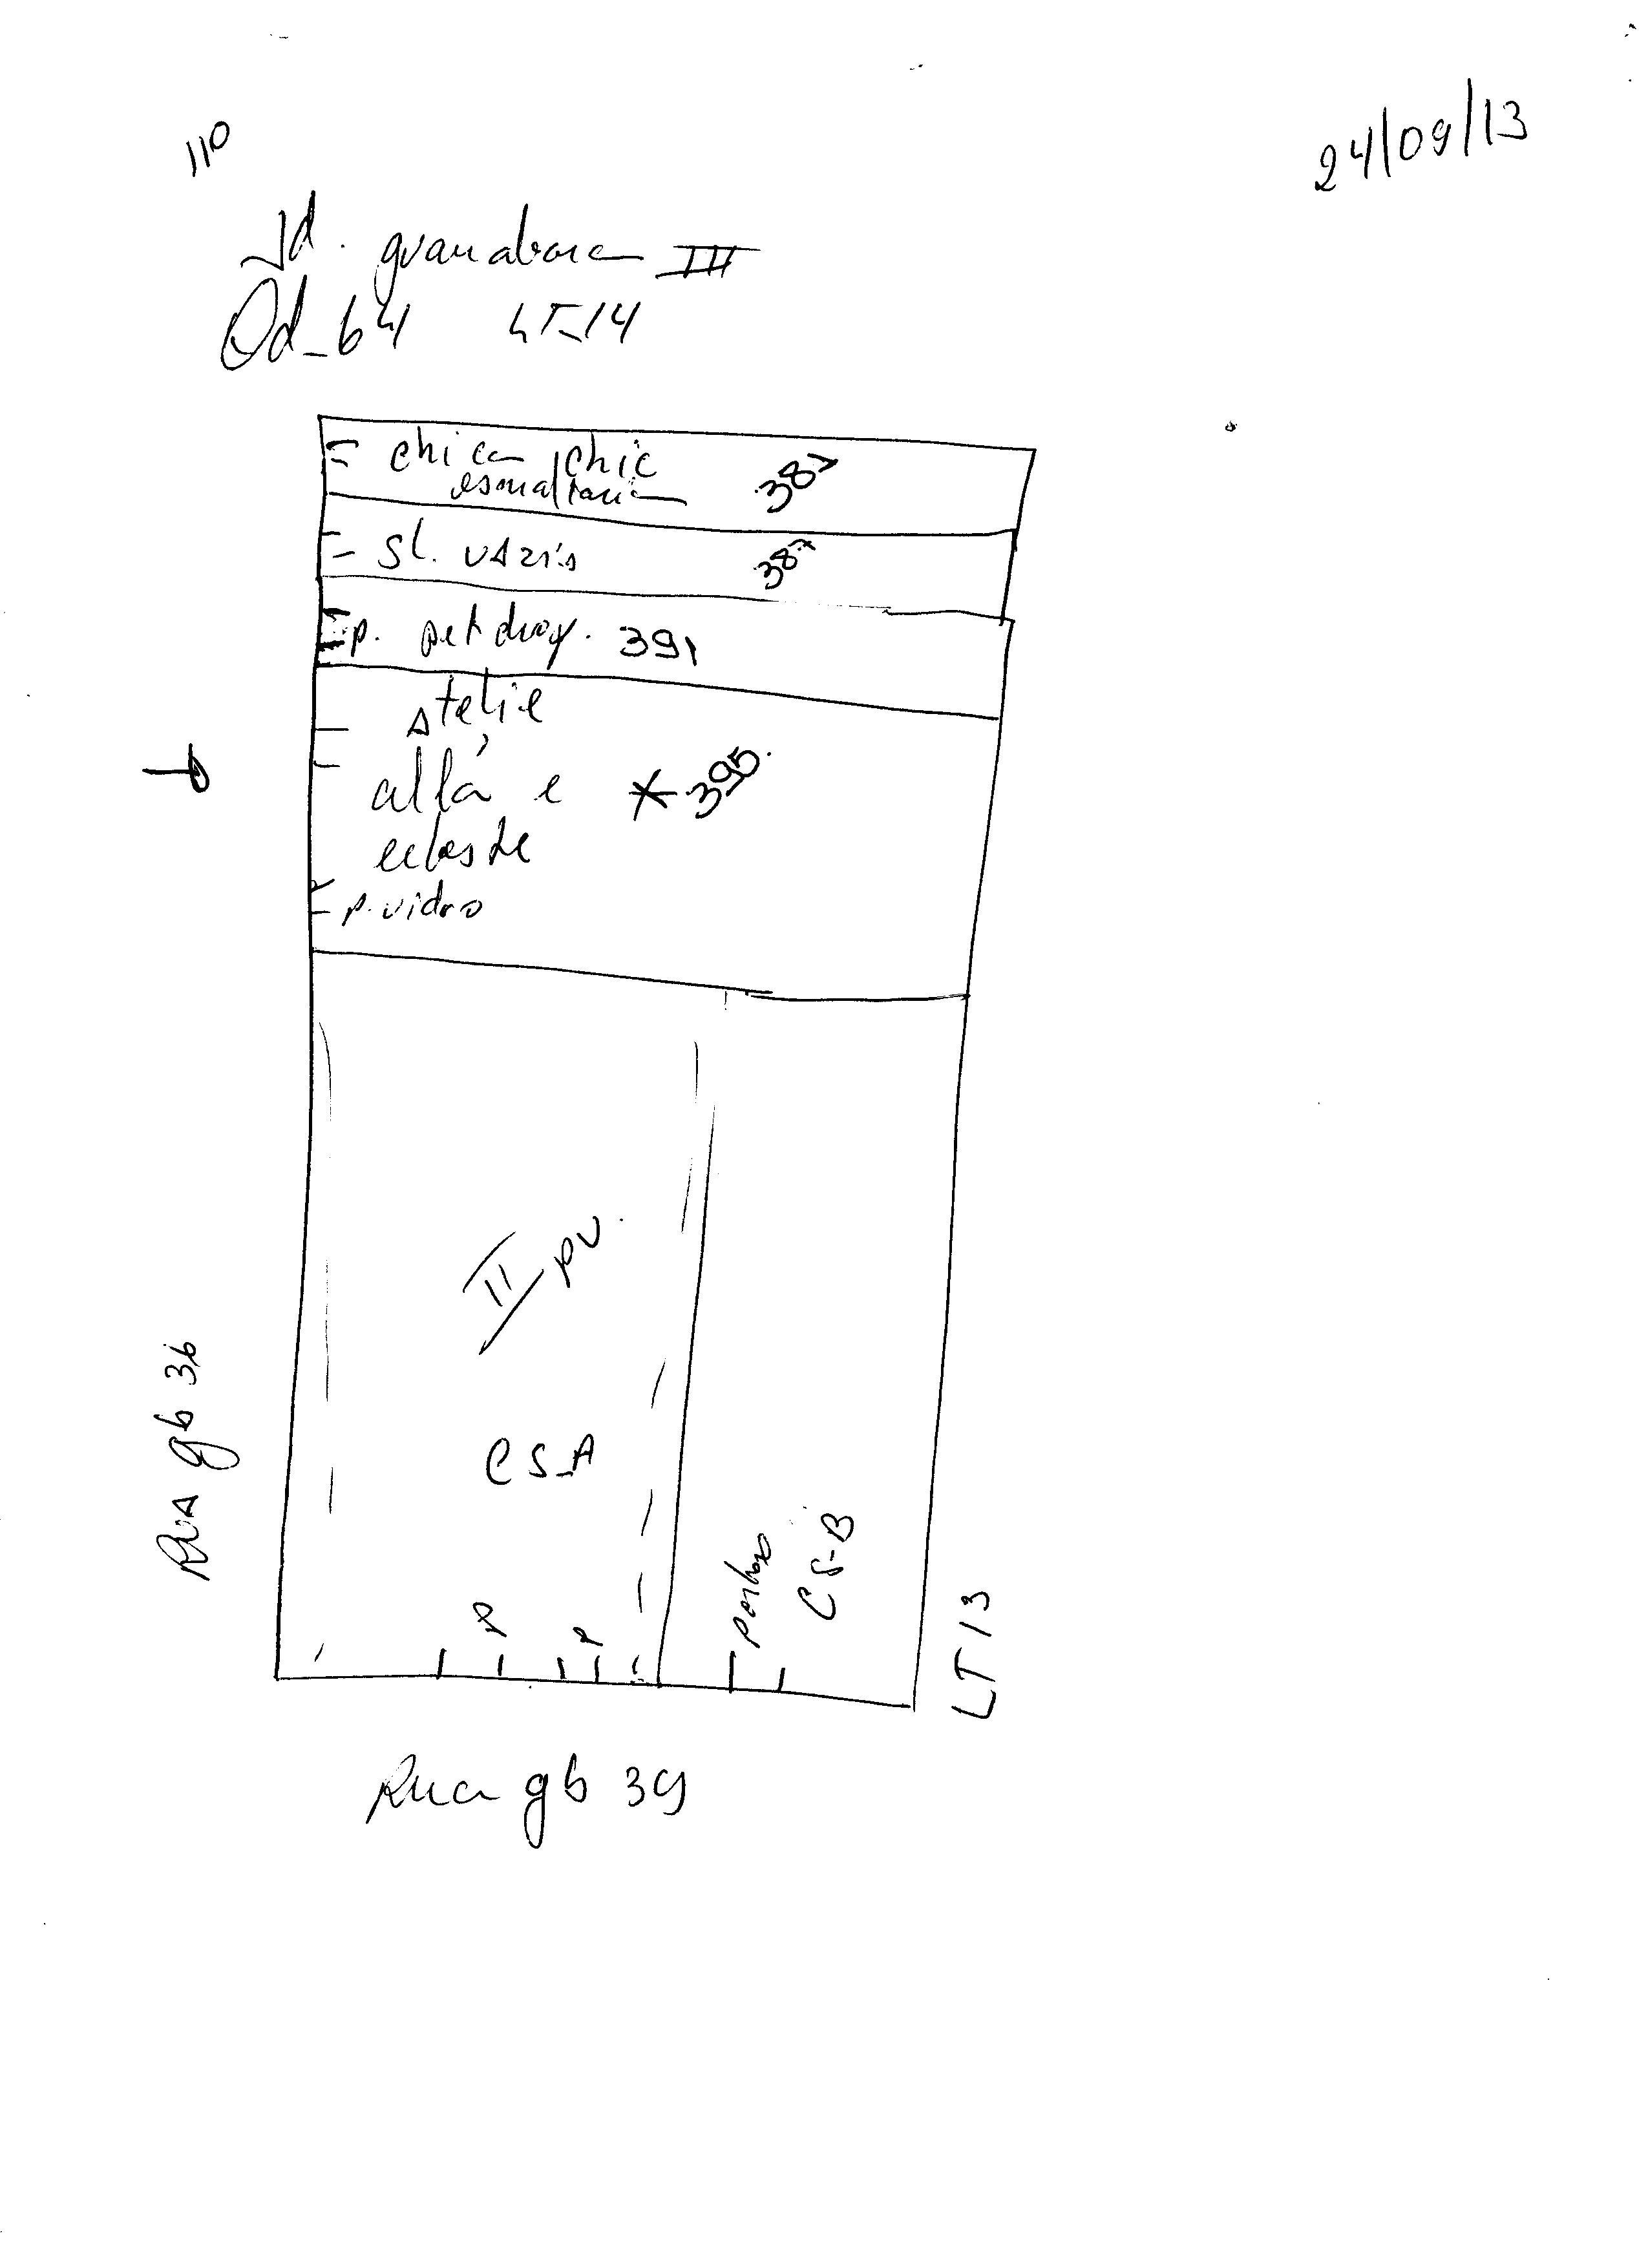 110
24/09/13
Jd. guanabara III
Qd_64 LT_14
chica chic
esmaltaria 387
SL. VAziA 387
p. 391
Atelie
e * 395.
p. vidro
II pv.
CS_A
P P
CS-B
LT 13
RuA gb 36
Rua gb 39